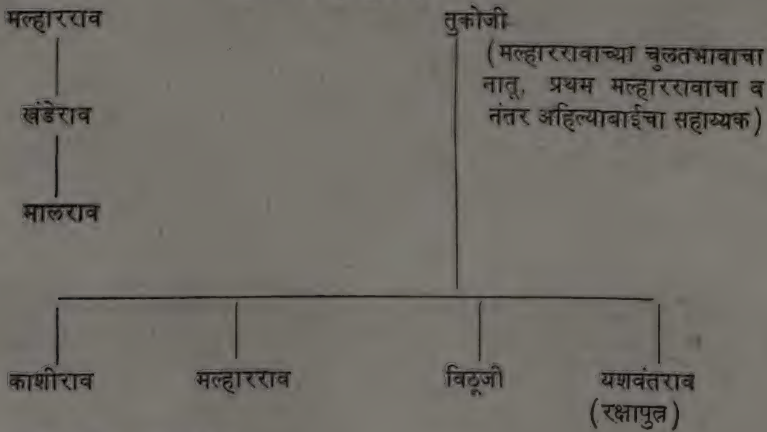 मल्हारराव
तुकोजी
(मल्हाररावाच्या चुलतभावाचा
नातू, प्रथम मल्हाररावाचा व
नंतर अहिल्याबाईचा सहाय्यक)
खंडेराव
मालराव
काशीराव मल्हारराव विठूजी यशवंतराव
(रक्षापुत्र)